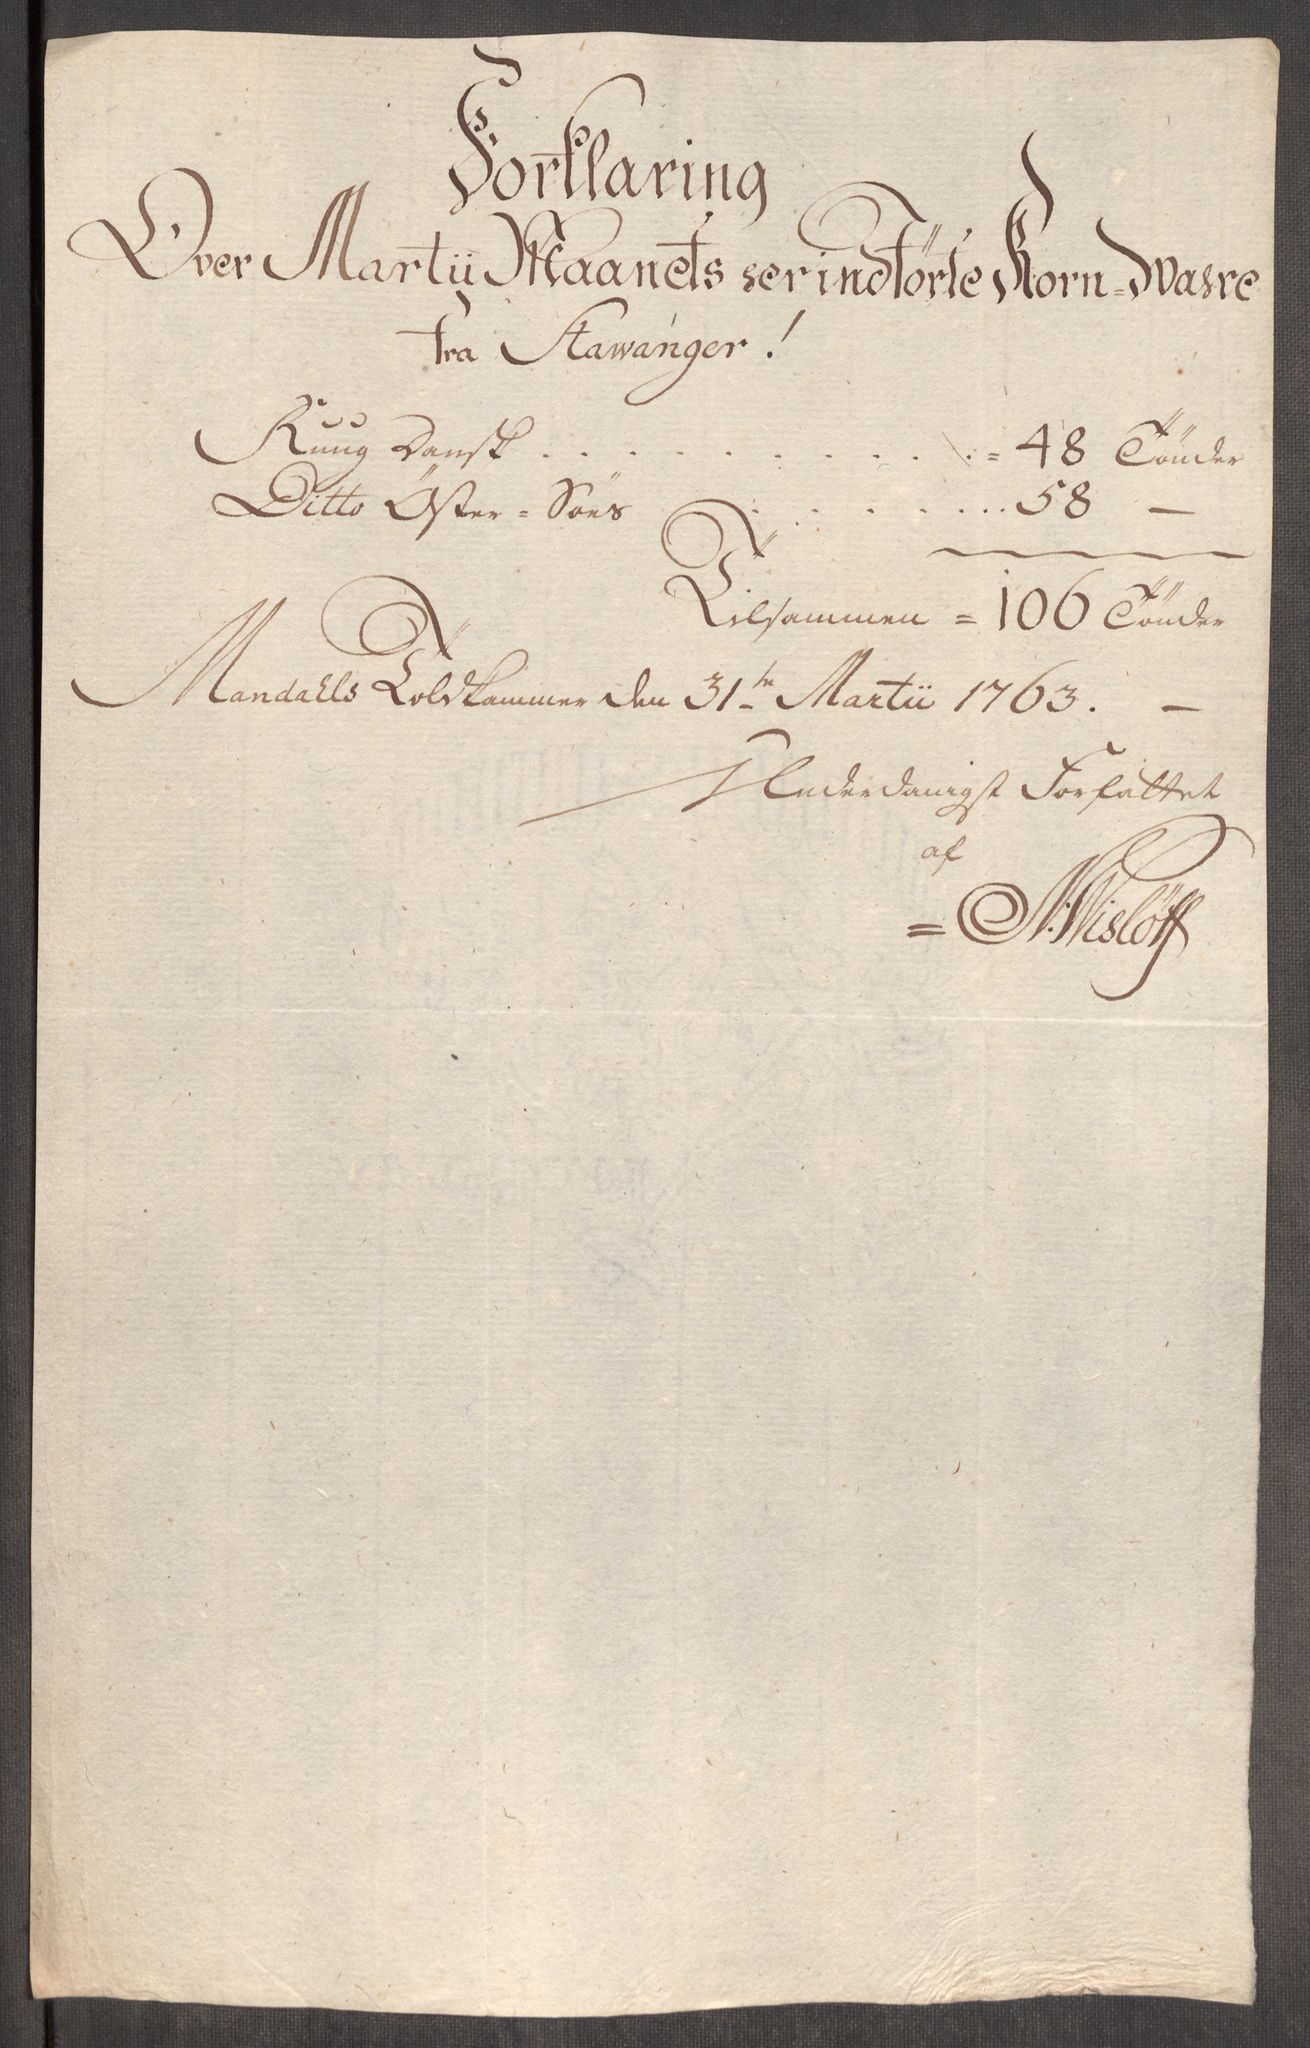 Forklaring
Over Martii Maanets her indförte Korn-Vahre
fra Stawanger!
Ruug Dansk . . . . . . . . . . . = 48 Tönder
Ditto Öster-Söes . . . . . . . . 58 —
Tilsammen = 106 Tönder
Mandahls Toldkammer den 31te Martii 1763. —
Underdanigst Forfattet
af
= N: Wislöff